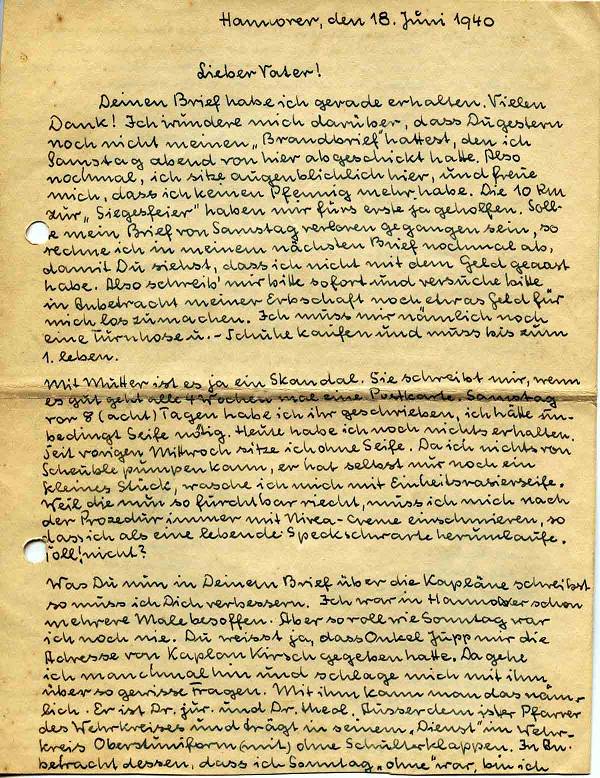 Hannover, den 18. Juni 1940
Lieber Vater!
Deinen Brief habe ich gerade erhalten. Vielen
Dank! Ich wundere mich darüber, dass Du gestern
noch nicht meinen „Brandbrief“ hattest, den ich
Samstag abend von hier abgeschickt hatte. Also
nochmal, ich sitze augenblichlich hier, und freue
mich, dass ich keinen Pfennig mehr habe. Die 10 RM
zur „Siegesfeier“ haben mir fürs erste ja geholfen. Soll-
te mein Brief von Samstag verloren gegangen sein, so
rechne ich in meinem nächsten Brief nochmal ab,
damit Du siehst, dass ich nicht mit dem Geld geaast
habe. Also schreib' mir bitte sofort und versuche bitte
in Anbetracht meiner Erbschaft noch etwas Geld für
mich loszumachen. Ich muss mir nämlich noch
eine Turnhose u. - Schuhe kaufen und muss bis zum
1. leben.
Mit Mutter ist es ja ein Skandal. Sie schreibt mir, wenn
es gut geht alle 4 Wochen mal eine Postkarte. Samstag
vor 8 (acht) Tagen habe ich ihr geschrieben, ich hätte un-
bedingt Seife nötig. Heute habe ich noch nichts erhalten.
Seit vorigen Mittwoch sitze ich ohne Seife. Da ich nichts von
Scheuble pumpen kann, er hat selbst nur noch ein
kleines Stück, wasche ich mich mit Einheitsrasierseife.
Weil die nun so furchtbar riecht, muss ich mich nach
der Prozedur immer mit Nivea-Creme einschmieren, so
dass ich als eine lebende Speckschwarte herumlaufe.
Toll! nicht?
Was Du nun in Deinem Brief über die Kapläne schreibst
so muss ich Dich verbessern. Ich war in Hannover schon
mehrere Male besoffen. Aber so voll wie Sonntag war
ich noch nie. Du weisst ja, dass Onkel Jupp mir die
Adresse von Kaplan Kirsch gegeben hatte. Da gehe
ich manchmal hin und schlage mich mit ihm
über so gewisse Fragen. Mit ihm kann man das näm-
lich. Er ist Dr. jur. und Dr. theol. Ausserdem ist er Pfarrer
des Wehrkreises und trägt in seinem „Dienst“ im Wehr-
kreis Oberstuniform (mit) ohne Schulterklappen. In An-
betracht dessen, dass ich Sonntag „ohne“ war, bin ich